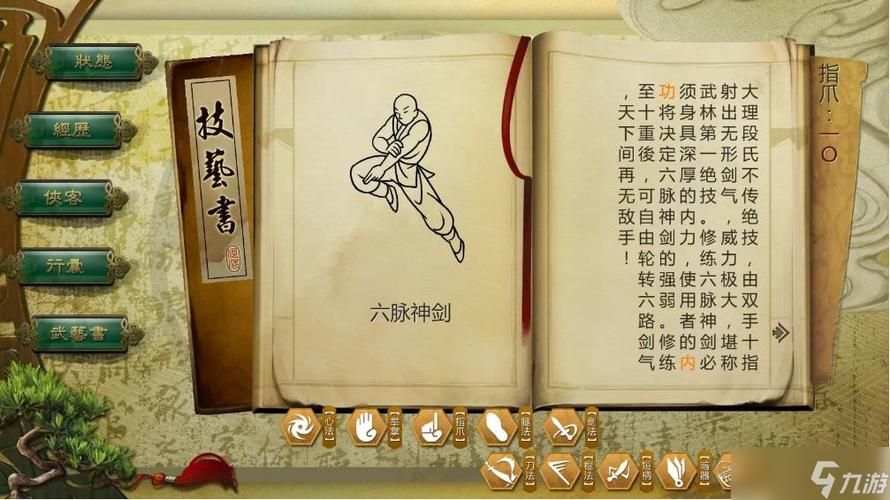 狀態
經歷
俠客
行囊
武藝書
技藝書
六脉神剑
大理段氏不传绝技，由双手十指
射出无形剑气，威力极大，堪称
武林第一绝技。修练六脉神剑必
须身具深厚的内力，使用者的内
功将决定六脉神剑的强弱。修练
至十重後，可自由轮转六路剑气
，天下间再无敌手！
指爪：一〇
【心法】
【拳掌】
【指爪】
【腿法】
【剑法】
【刀法】
【棍法】
【短柄】
【暗器】
九游